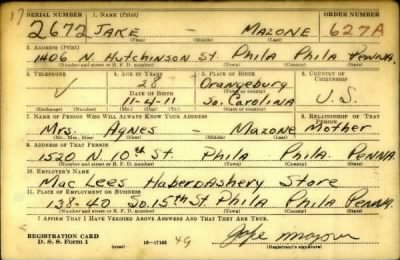 17
SERIAL NUMBER 1. NAME (Print) ORDER NUMBER
2672 JAKE - MAZONE 627A
(First) (Middle) (Last)
2. ADDRESS (Print)
1406 N. Hutchinson St. Phila Phila Penna.
(Number and street or R. F. D. number) (Town) (County) (State)
3. TELEPHONE 4. AGE IN YEARS 5. PLACE OF BIRTH 6. COUNTRY OF CITIZENSHIP
28 Orangeburg
DATE OF BIRTH (Town or county)
11-4-11 So. Carolina U.S.
(Exchange) (Number) (Mo.) (Day) (Yr.) (State or country)
7. NAME OF PERSON WHO WILL ALWAYS KNOW YOUR ADDRESS 8. RELATIONSHIP OF THAT PERSON
Mrs. Agnes - Mazone Mother
(Mr., Mrs., Miss) (First) (Middle) (Last)
9. ADDRESS OF THAT PERSON
1520 N. 10th St. Phila. Phila. Penna.
(Number and street or R. F. D. number) (Town) (County) (State)
10. EMPLOYER'S NAME
Mac Lees Haberdashery Store
11. PLACE OF EMPLOYMENT OR BUSINESS
138-40 So. 15th St. Phila Phila Penna.
(Number and street or R. F. D. number) (Town) (County) (State)
I AFFIRM THAT I HAVE VERIFIED ABOVE ANSWERS AND THAT THEY ARE TRUE.
REGISTRATION CARD
D. S. S. Form 1 (over) 16-17105 49 Mazone
(Registrant's signature)